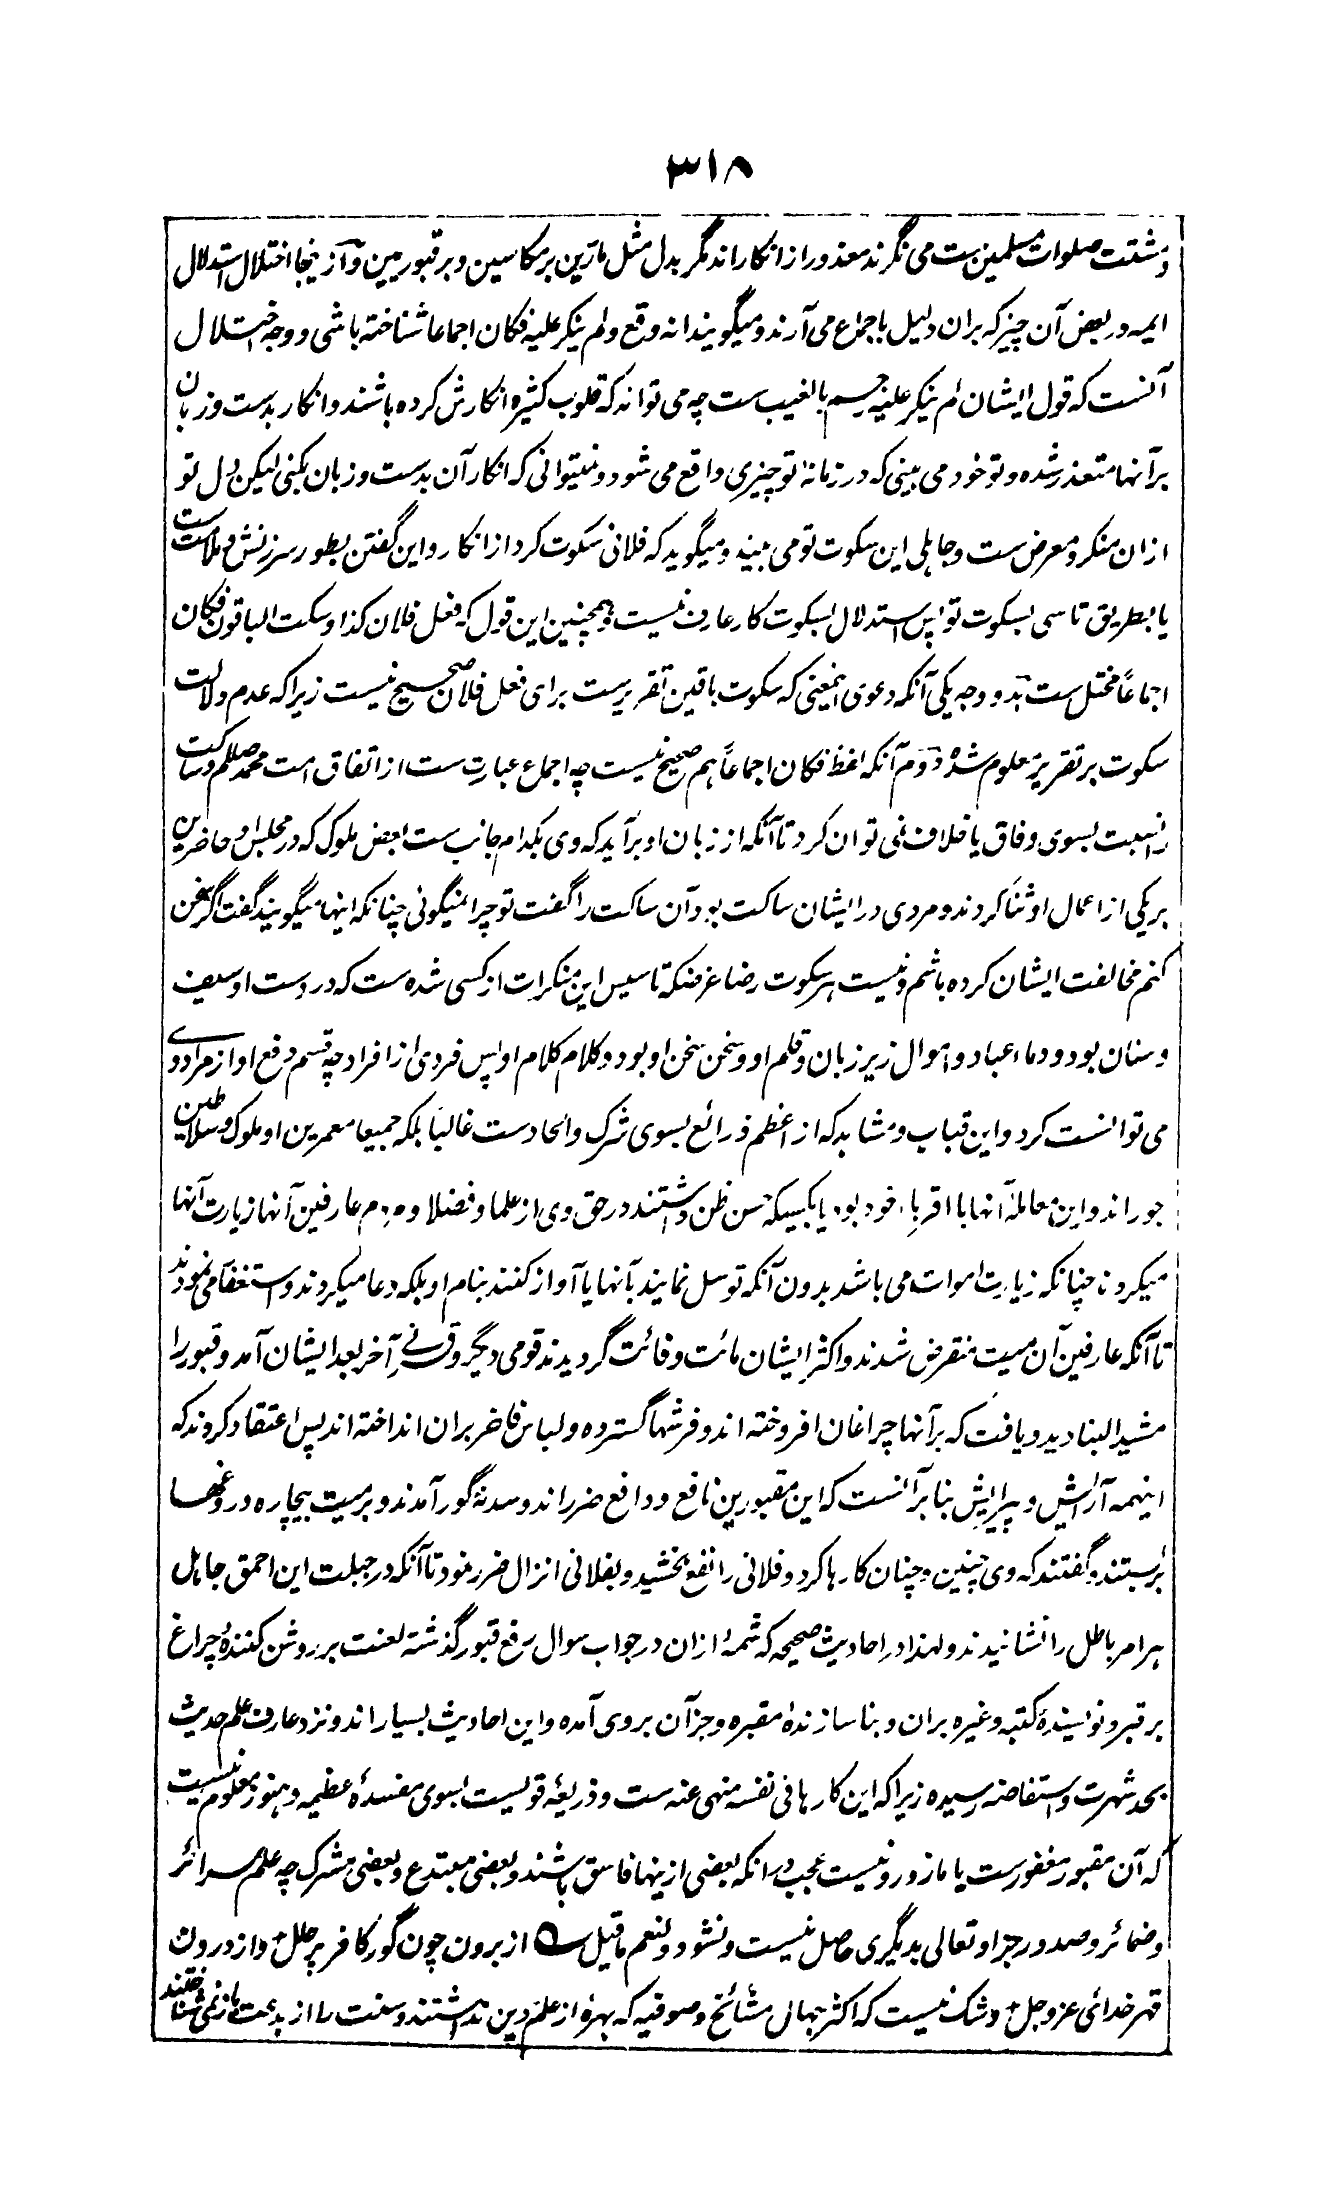 ۳۱۸
و شتت صلوات مسلمین ست می نگرند معذور از انکار اند مگر بدل مثل مارّین بر مکاسین و بر قبوریین و از ینجا اختلال استدلال
ایمه در بعض آن چیز که بران دلیل باجماع می آرند و میگویند انه وقع و لم ینکر علیه فکان اجماعا شناخته باشی و وجه اختلال
آنست که قول ایشان لم ینکر علیه رجم بالغیب ست چه می تواند که قلوب کثیره انکارش کرده باشند و انکار بدست و زبان
بر آنها متعذر شده و تو خود می بینی که در زمانهٔ تو چیزی واقع می شود و نمیتوانی که انکار آن بدست و زبان بکنی لیکن دل تو
ازان منکر و معرض ست و جاهلی این سکوت تو می بیند و میگوید که فلانی سکوت کرد از انکار و این گفتن بطور سرزنش و ملامت ست
یا بطریق تاسی بسکوت تو پس استدلال بسکوت کار عارف نیست و همچنین این قول که فعل فلان کذا و سکت الباقون فکان
اجماعاً مختل ست بدو وجه یکی آنکه دعوی اینمعنی که سکوت باقین تقریرست برای فعل فلان صحیح نیست زیرا که عدم دلالت
سکوت بر تقریر معلوم شده دوم آنکه لفظ فکان اجماعاً هم صحیح نیست چه اجماع عبارت ست از اتفاق امت محمد صلعم و ساکت
را نسبت بسوی وفاق یا خلاف نمی توان کرد تا آنکه از زبان او برآید که وی بکدام جانب ست بعض ملوک که در مجلس او حاضرین
بر یکی از اعمال او ثنا کردند و مردی در ایشان ساکت بود آن ساکت را گفت تو چرا نمیگوئی چنانکه اینها میگویند گفت اگر سخن
کنم مخالفت ایشان کرده باشم و نیست هر سکوت رضا غرضکه تاسیس این منکرات از کسی شده ست که در دست او سیف
و سنان بود و دماء عباد و اموال زیر زبان و قلم او و سخن سخن او بود و کلام کلام او پس فردی از افراد چه قسم دفع او از مراد وی
می توانست کرد و این قباب و مشاهد که از اعظم ذرائع بسوی شرک و الحادست غالباً بلکه جمیعا معمرین او ملوک و سلاطین
جور اند و این معاملهٔ آنها با اقرباء خود بود یا بکسیکه حسن ظن داشتند در حق وی از علما و فضلا و مردم عارفین آنها زیارت آنها
میکردند چنانکه زیارت اموات می باشد بدون آنکه توسل نمایند بآنها یا آواز کنند بنام او بلکه دعا میکردند و استغفار می نمودند
تا آنکه عارفین آن میت منقرض شدند و اکثر ایشان مائت و فائت گردیدند قومی دیگر و قرنی آخر بعد ایشان آمد و قبور را
مشید البنا دید و یافت که بر آنها چراغان افروخته اند و فرشها گسترده و لباس فاخر بران انداخته اند پس اعتقاد کردند که
اینهمه آرایش و پیرایش بنا بر آنست که این مقبورین نافع و دافع ضرر اند و سدنهٔ گور آمدند و بر میت بیچاره دروغها
بر بستند و گفتند که وی چنین و چنان کارها کرد و فلانی را نفع بخشید و بفلانی انزال ضرر نمود تا آنکه در جبلت این احمق جاهل
هر امر باطل را نشانیدند و لهذا در احادیث صحیحه که شمهٔ ازان در جواب سوال رفع قبور گذشته لعنت بر روشن کنندهٔ چراغ
بر قبر و نویسندهٔ کتبه و غیره بران و بنا سازندهٔ مقبره و جز آن بروی آمده و این احادیث بسیار اند و نزد عارف علم حدیث
بحد شهرت و استفاضه رسیده زیرا که این کارها فی نفسه منهی عنه ست و ذریعهٔ قویست بسوی مفسدهٔ عظیمه و هنوز معلوم نیست
که آن مقبور مغفورست یا مازور و نیست عجب در انکه بعضی از ینها فاسق باشند و بعضی مبتدع و بعضی مشرک چه علم سرائر
و ضمائر و صدور جز او تعالی بدیگری حاصل نیست و نشود و لنعم ما قیل ؎ از برون چون گور کافر پر حلل + و از درون
قهر خدای عز و جل + و شک نیست که اکثر جهال مشائخ و صوفیه که بهرهٔ از علم دین نداشتند و سنت را از بدعت باز نمی شناختند